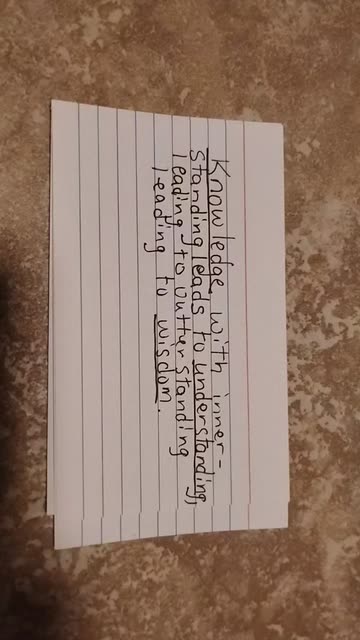 Knowledge with inner-
standing leads to understanding,
leading to outter standing
leading to wisdom.